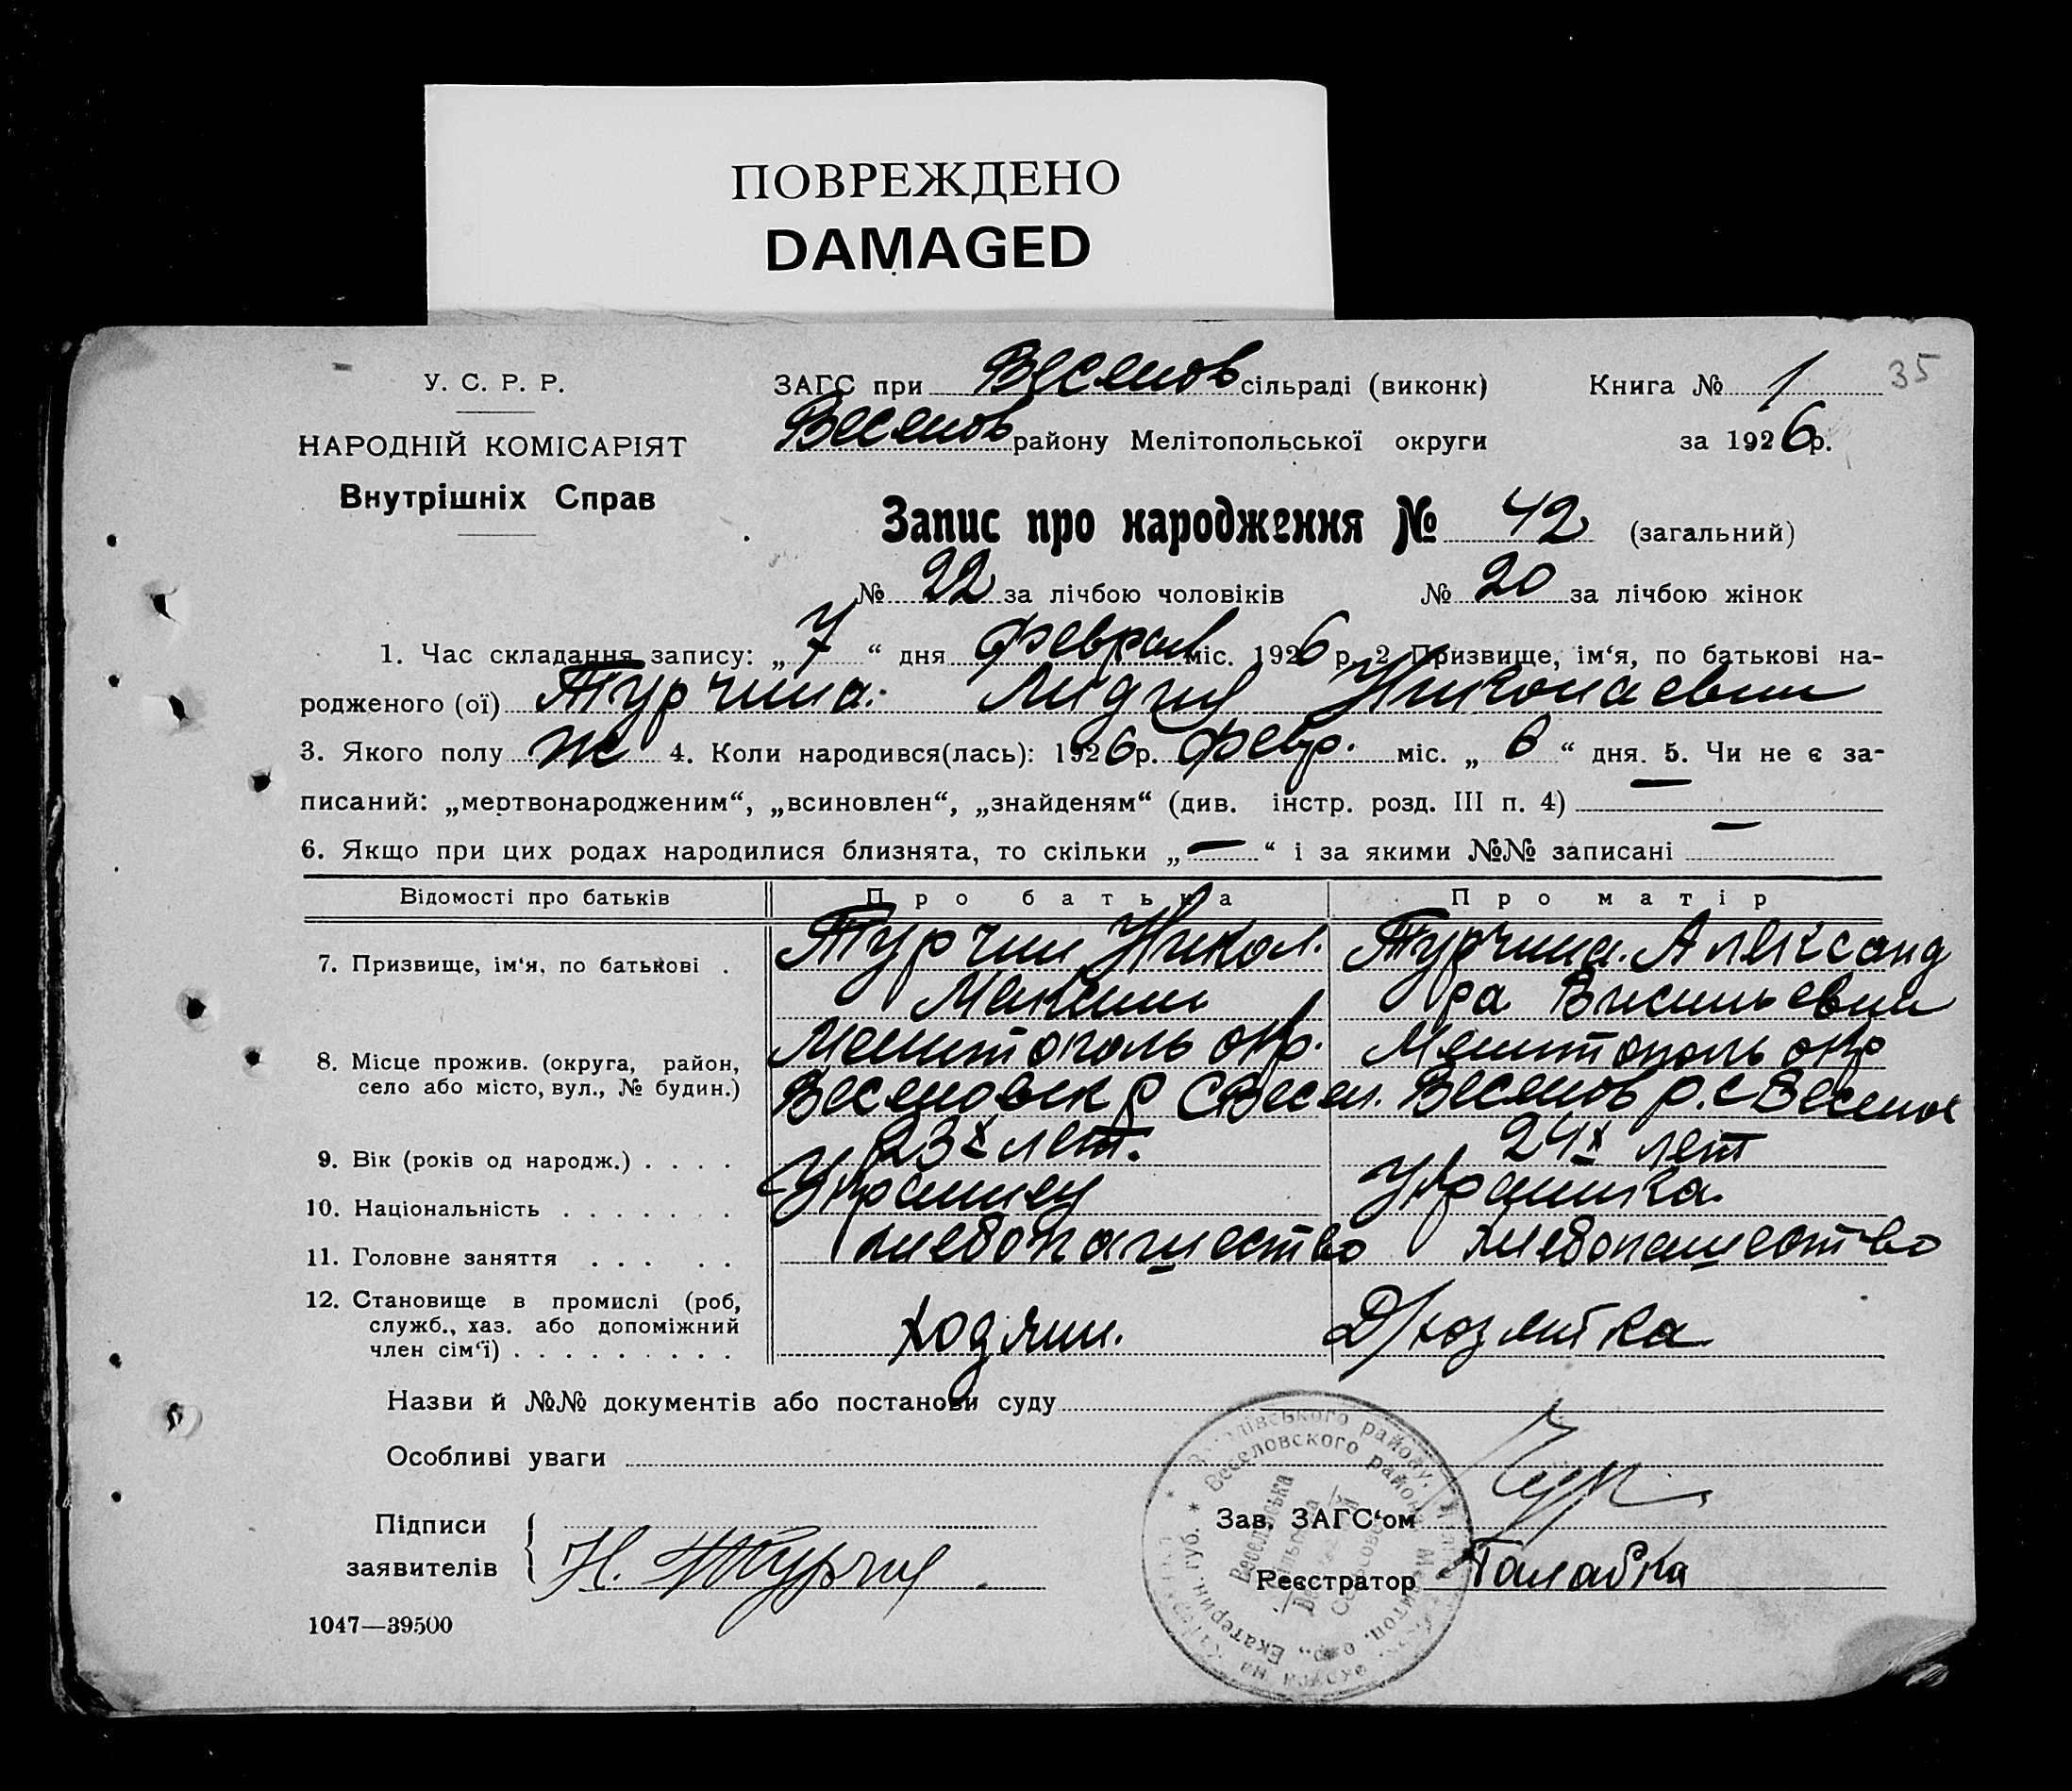 ПОВРЕЖДЕНО
DAMAGED
35
У. С. Р. Р.
ЗАГС при Веселов сільраді (виконк) Книга № 1
Веселов району Мелітопольської округи за 1926 р.
НАРОДНІЙ КОМІСАРІЯТ
Внутрішніх Справ
Запис про народження № 42 (загальний)
№ 22 за лічбою чоловіків № 20 за лічбою жінок
1. Час складання запису: „7“ дня февраля міс. 1926 р. 2 Призвище, ім‘я, по батькові на-
родженого (ої) Турчина Лидия Николаевна
3. Якого полу ж 4. Коли народився(лась): 1926 р. февр. міс. „6“ дня. 5. Чи не є за-
писаний: „мертвонародженим“, „всиновлен“, „знайденям“ (див. інстр. розд. III п. 4) —
6. Якщо при цих родах народилися близнята, то скільки „—“ і за якими №№ записані —
Відомості про батьків Про батька Про матір
7. Призвище, ім‘я, по батькові . Турчин Никол. Турчина. Александ
ра Васильевна
8. Місце прожив. (округа, район, Мелитополь окр. Мелитополь окр
село або місто, вул., № будин.) Веселовск р С Весел. Веселов р. с Веселое
9. Вік (років од народж.) . . . . 23х лет. 24х лет
10. Національність . . . . . . . Украинец Украинка.
11. Головне заняття . . . . . хлебопашество хлебопашество
12. Становище в промислі (роб,
служб., хаз. або допоміжний Хозяин. Д/хозяйка
член сім‘ї) . . . . . . . . .
Назви й №№ документів або постанови суду
Особливі уваги
Підписи
заявителів Н. Турчин
Зав. ЗАГС‘ом
Реєстратор
1047—39500
Веселівського району,
* Веселовского район
Екатерин. губ. *
Веселівська